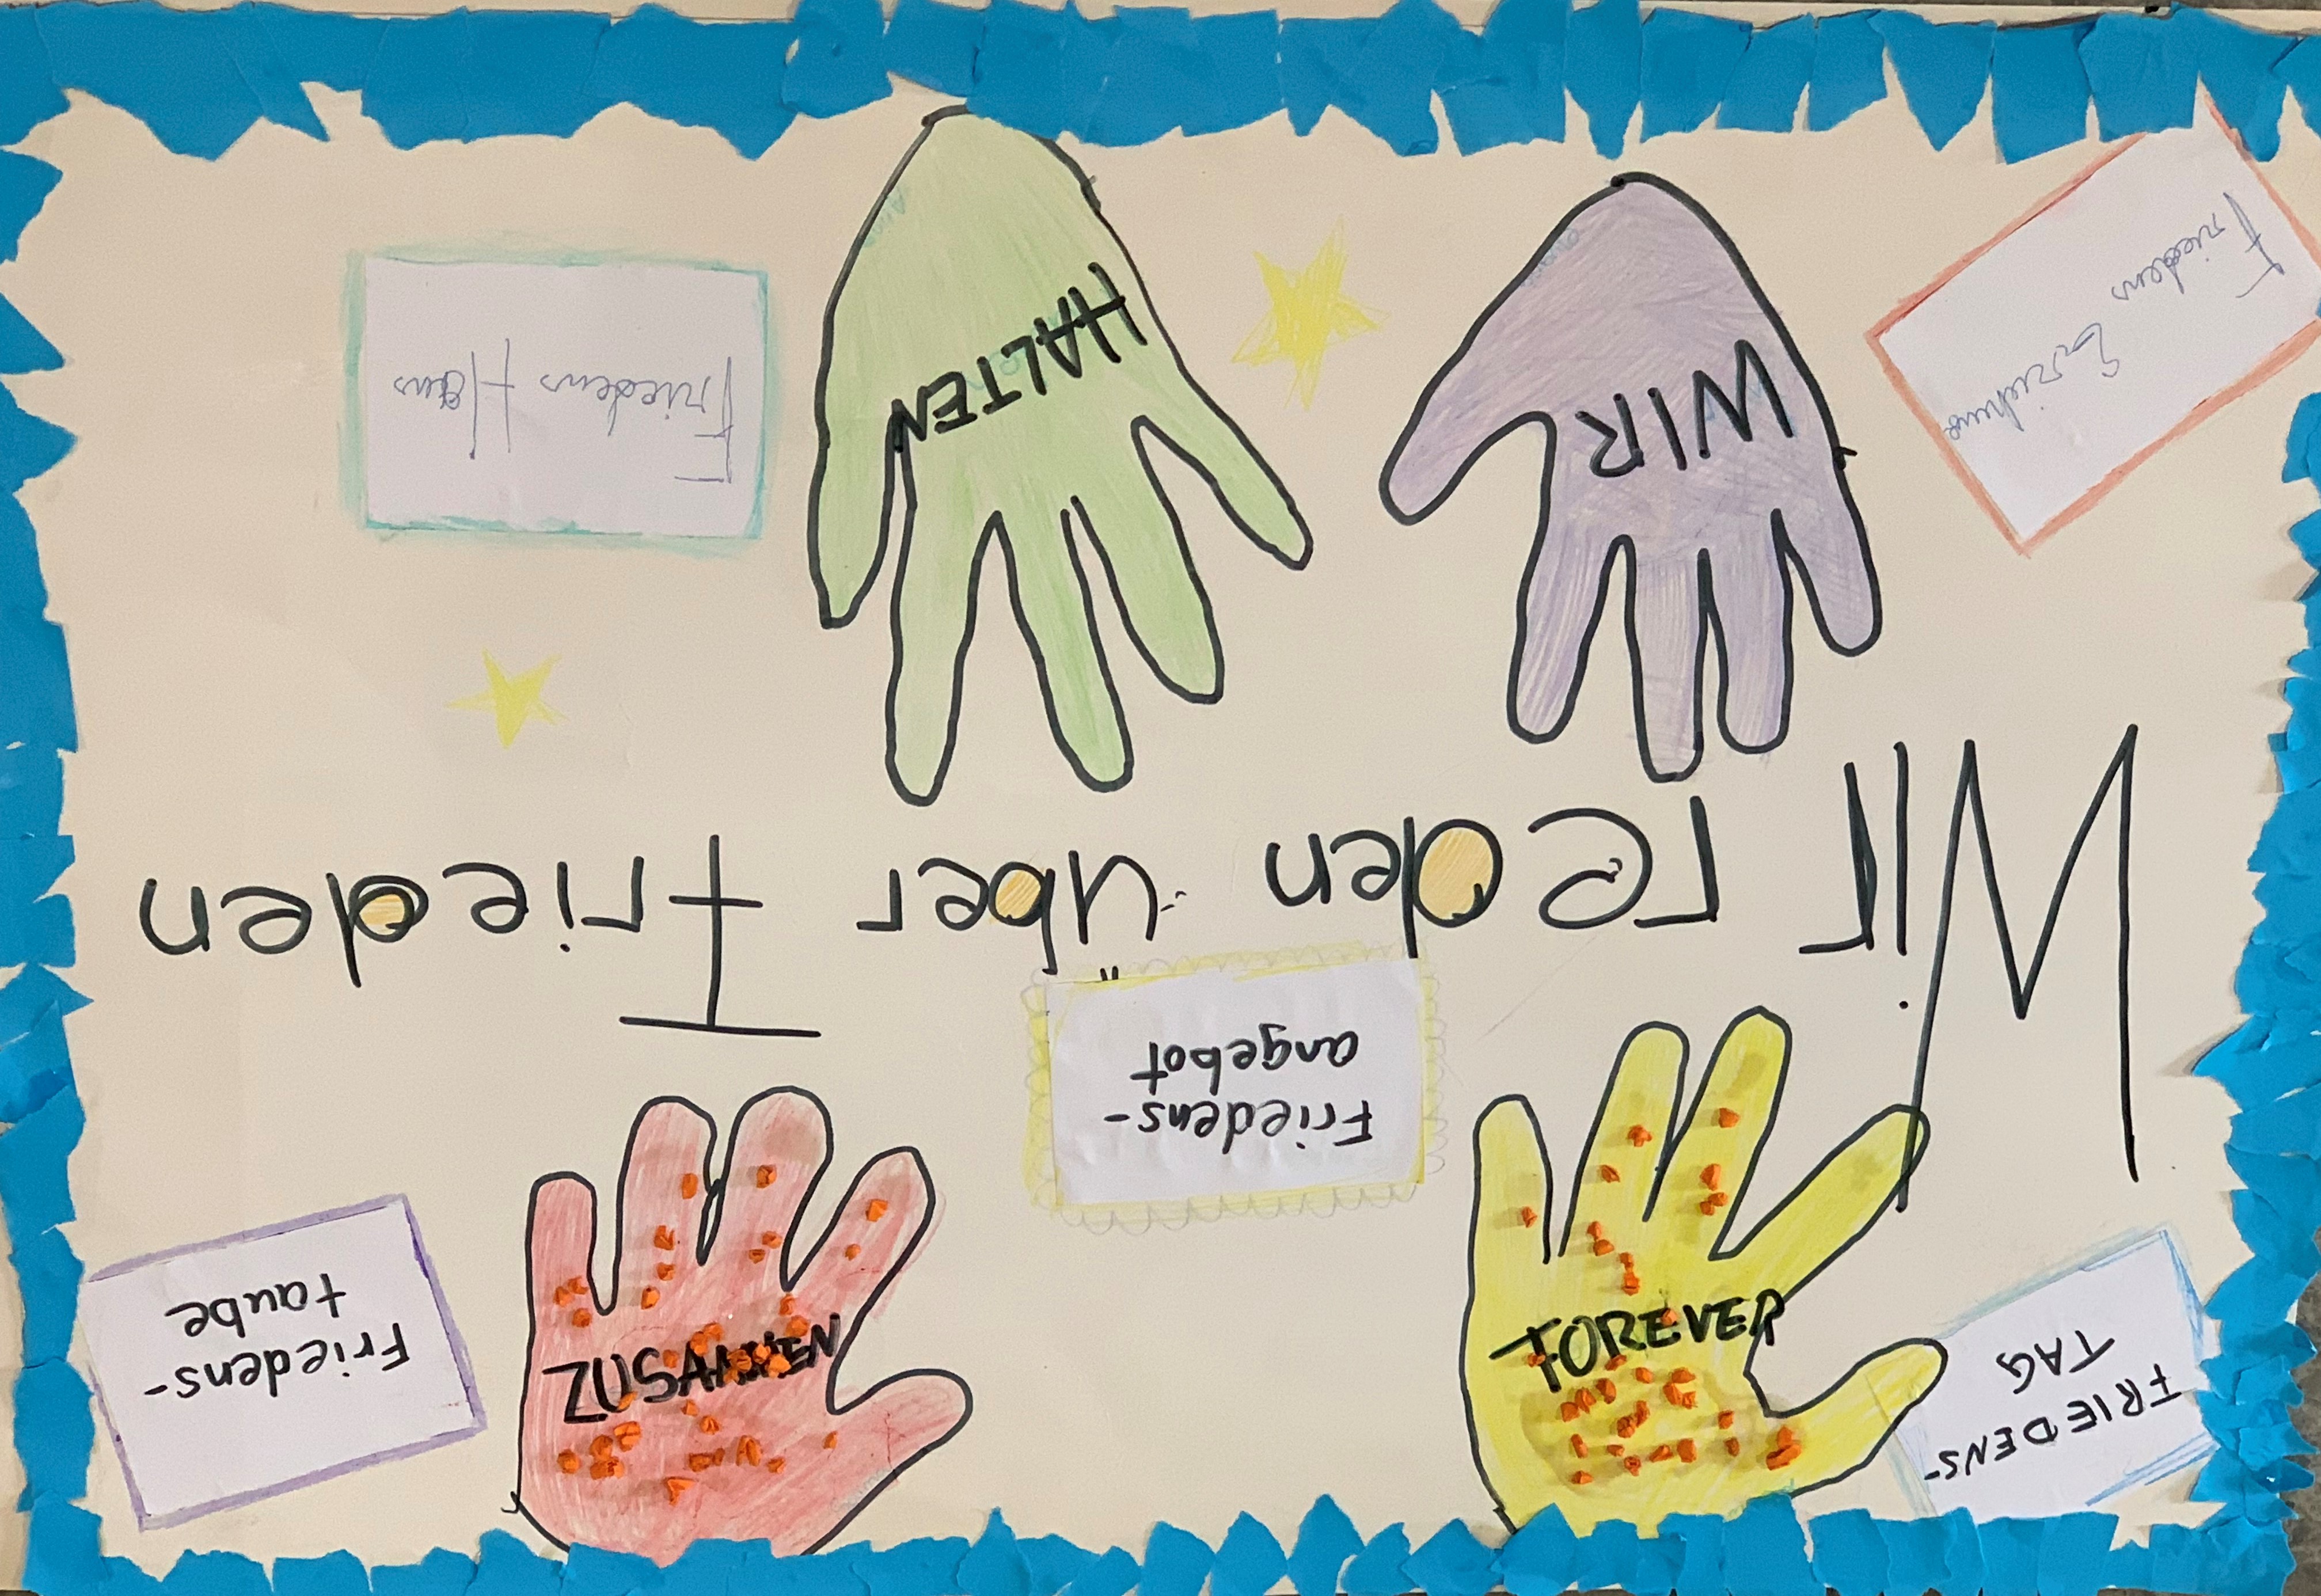 FRIEDENS-
TAG
FOREVER
Friedens-
angebot
ZUSAMMEN
Friedens-
taube
Wir reden über Frieden
Friedens
WIR
HALTEN
Friedens Haus